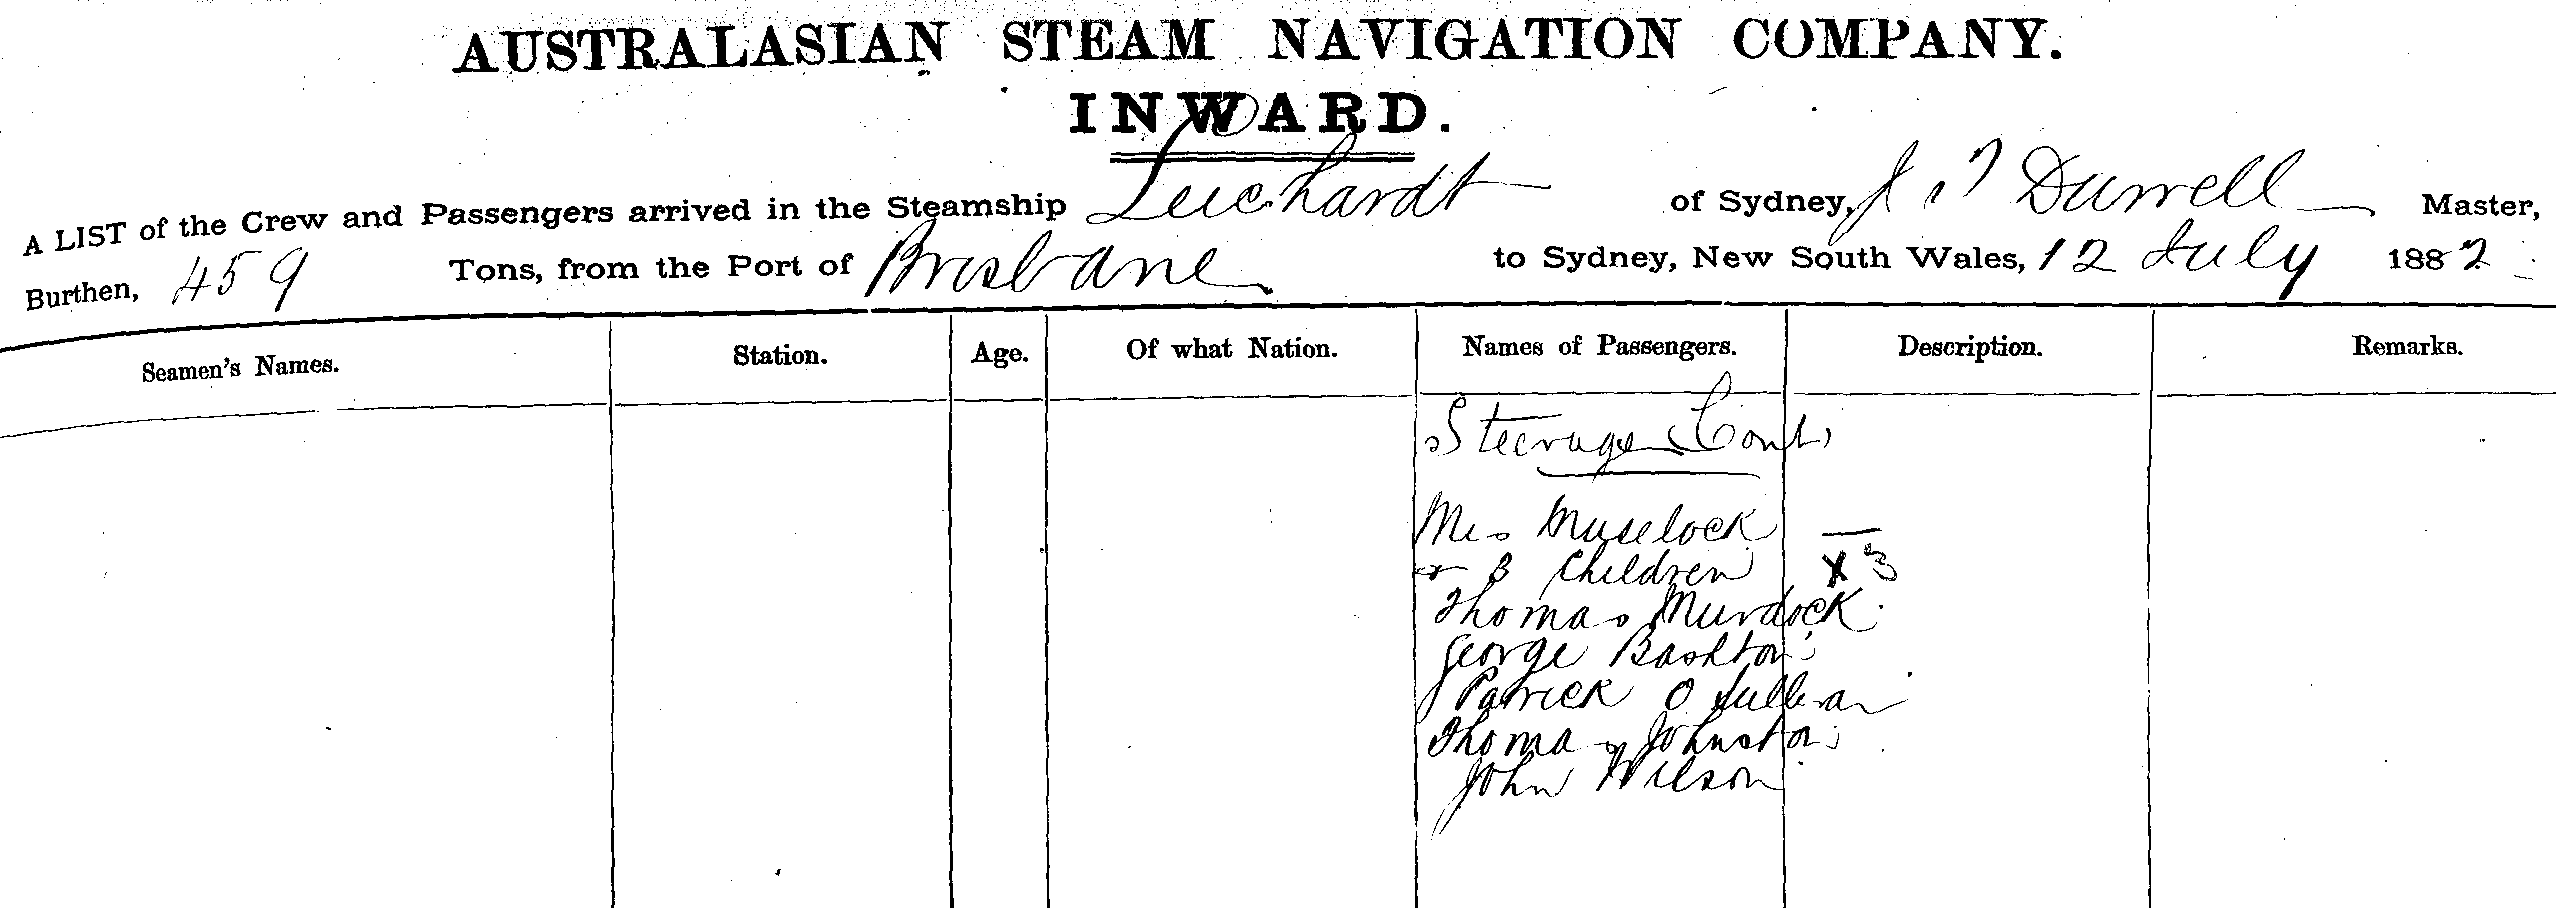 AUSTRALASIAN STEAM NAVIGATION COMPANY.
INWARD.
A LIST of the Crew and Passengers arrived in the Steamship Leichardt of Sydney, J Durrell Master,
Burthen, 459 Tons, from the Port of Brisbane to Sydney, New South Wales, 12 July 1882
Seamen's Names. Station. Age. Of what Nation. Names of Passengers. Description. Remarks.
Steerage Cont
Mrs —
3 Children X 3
Thomas Murdock
George Bashton
Patrick O Sullivan
Thomas Johnston
John Wilson